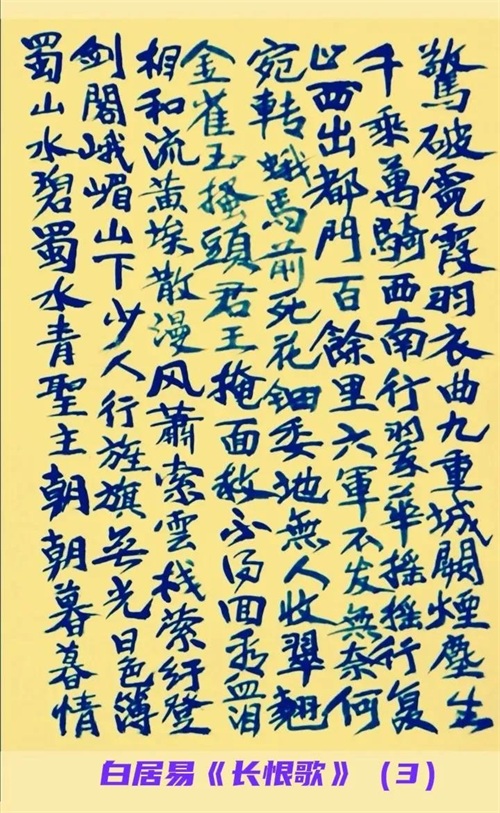 驚破霓霞羽衣曲九重城闕煙塵生
千乘萬騎西南行翠華摇摇行复
止西出都門百餘里六軍不发無奈何
宛轉蛾馬前死花鈿委地無人收翠翹
金雀玉搔頭君王掩面救不得回看血泪
相和流黄埃散漫风蕭索雲栈萦纡登
剑閣峨嵋山下少人行旌旗无光日色簿
蜀山水碧蜀水青聖主朝朝暮暮情
白居易《长恨歌》（3）